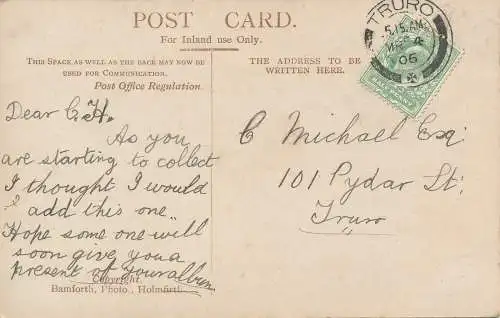 POST CARD.
For Inland use Only.
THIS SPACE AS WELL AS THE BACK MAY NOW BE
USED FOR COMMUNICATION.
Post Office Regulation.
THE ADDRESS TO BE
WRITTEN HERE.
TRURO
5.15 AM
MR 4
06
Dear C.H.
As you
are starting to collect
I thought I would
"add this one"
Hope some one will
soon give you a
present of your album
C Michael Esq
101 Pydar St.
Truro
Copyright.
Bamforth, Photo., Holmfirth.